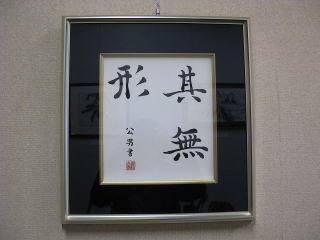 其無
形
公男書